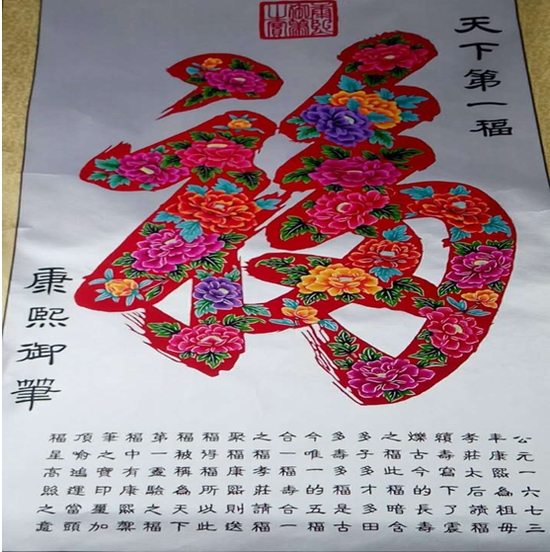 天下第一福
康熙御筆
公元一六七三
年康熙為祖母
孝莊太后請福
績壽寫下了震
爍古今的長壽
之福此福暗含
多子多才多田
多壽多福是古
今唯一的五福
合一福壽合一
之福孝莊請福
聚福康熙則送
福得福所以此
福被稱為天下
第一靈驗之福
福中有康熙禦
筆之寶印璽加
頂喻鴻運當頭
福星高照之意